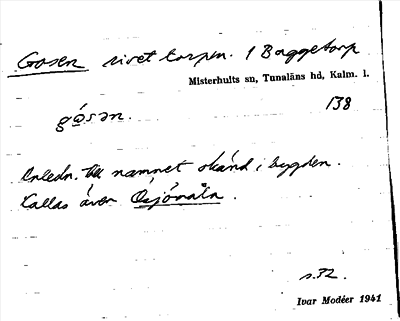 Gosen rivet torpen. I Baggetorp
Misterhults sn, Tunaläns hd, Kalm. l.
138
gósən.
Anledn. till namnet okänd i bygden.
Kallas även
s. 72.
Ivar Modéer 1941